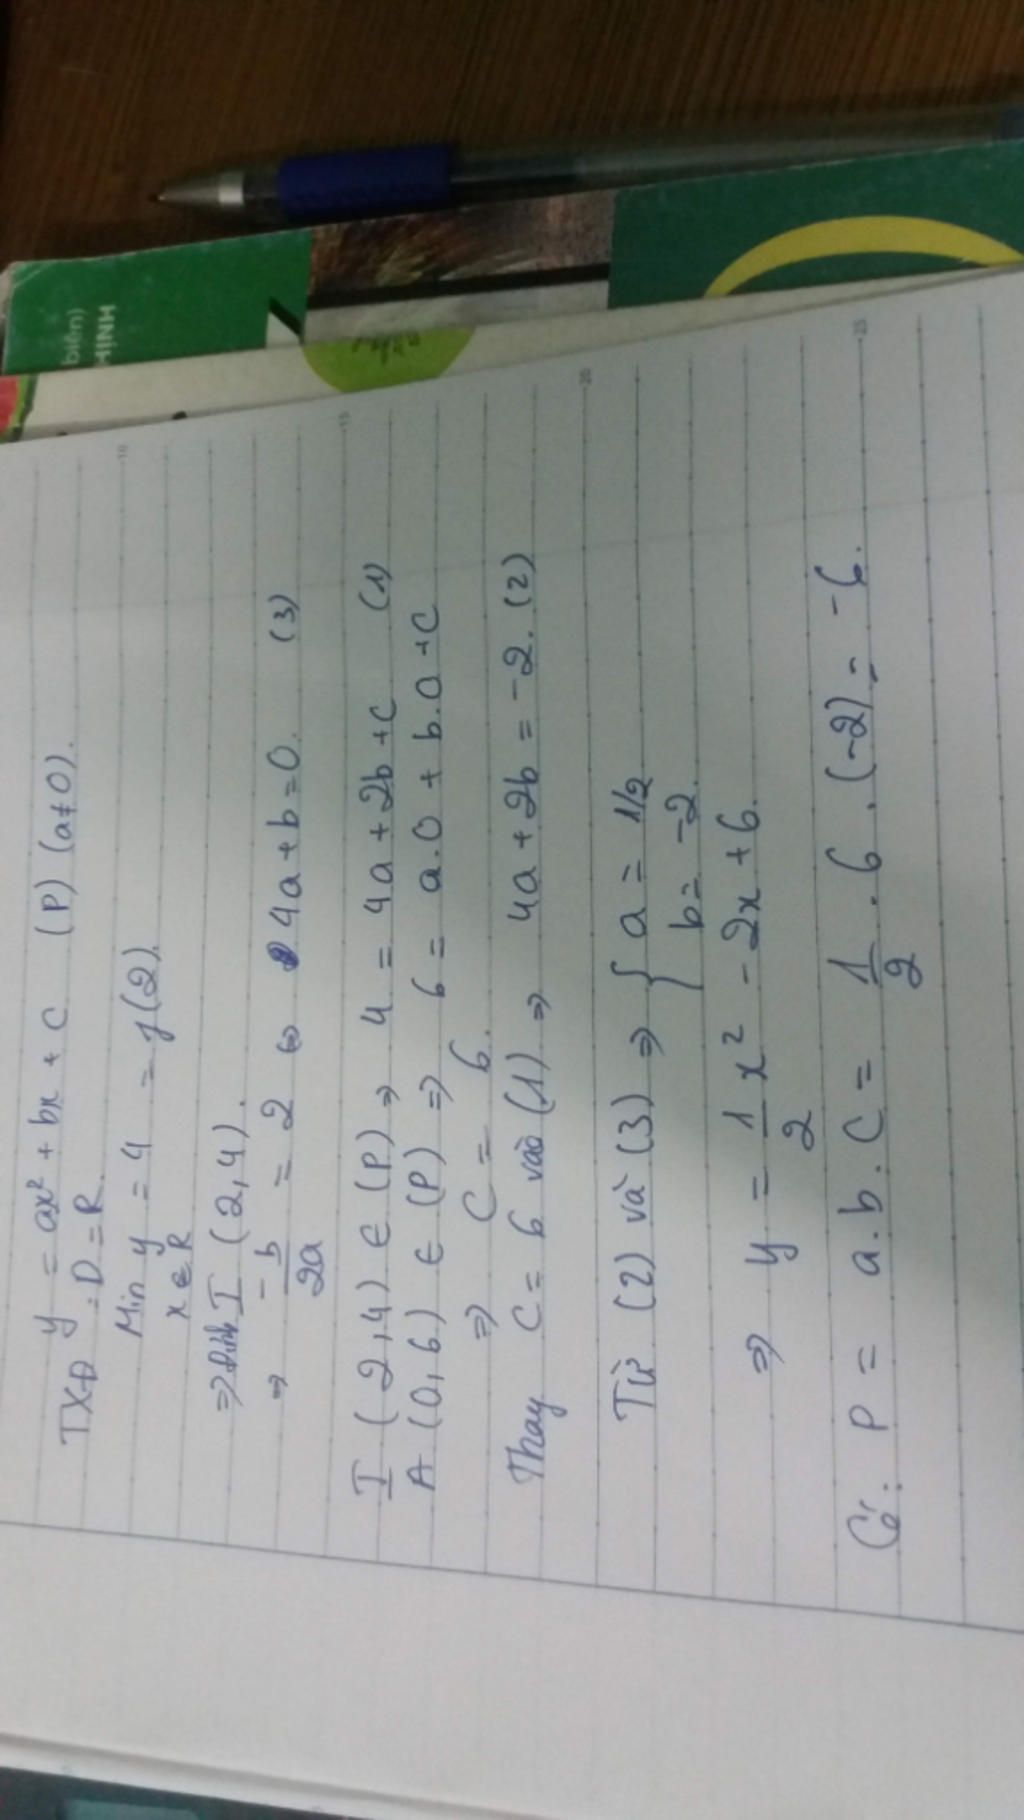 biên)
HỊNH
10
15
20
25
y = ax² + bx + c (P) (a ≠ 0).
TXĐ : D = R.
Min y = 4 = y(2).
x ∈ R
⇒ Đỉnh I (2,4).
⇒ -b/2a = 2 ⇔ 4a + b = 0. (3)
I (2,4) ∈ (P) ⇒ 4 = 4a + 2b + c (1)
A (0,6) ∈ (P) ⇒ 6 = a.0 + b.0 + c
⇒ c = 6.
Thay c = 6 vào (1) ⇒ 4a + 2b = -2. (2)
Từ (2) và (3) ⇒ { a = 1/2
b = -2.
⇒ y = 1/2 x² - 2x + 6.
Có: P = a.b.c = 1/2 . 6 . (-2) = -6.